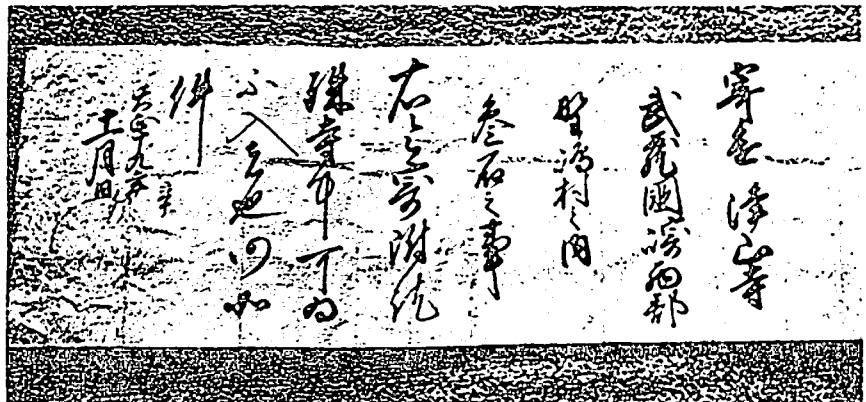 寄進 浄山寺
武蔵国崎西郡
野嶋村之内
参石之事
右令寄附訖
殊寺中可為
不入者也仍如
件
天正十九年辛卯
十一月日